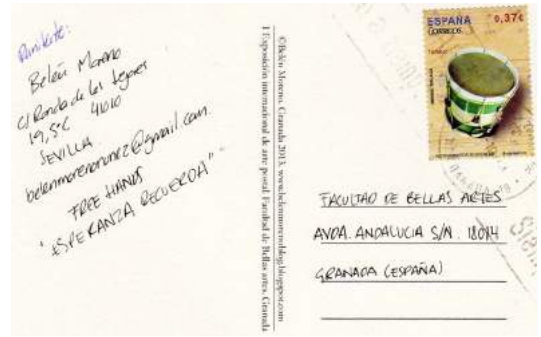 Remitente:
Belén Moreno
C/ Ronda de los Tejares
19, 5ºC 41010
SEVILLA
belenmorenonunez@gmail.com
FREE HANDS
"ESPERANZA RECUERDA"
©Belén Moreno. Granada 2013. www.belenmorenoblog.blogspot.com
I Exposición internacional de arte postal. Facultad de Bellas artes. Granada
ESPAÑA 0,37€
CORREOS
FACULTAD DE BELLAS ARTES
AVDA. ANDALUCIA S/N. 18014
GRANADA (ESPAÑA)